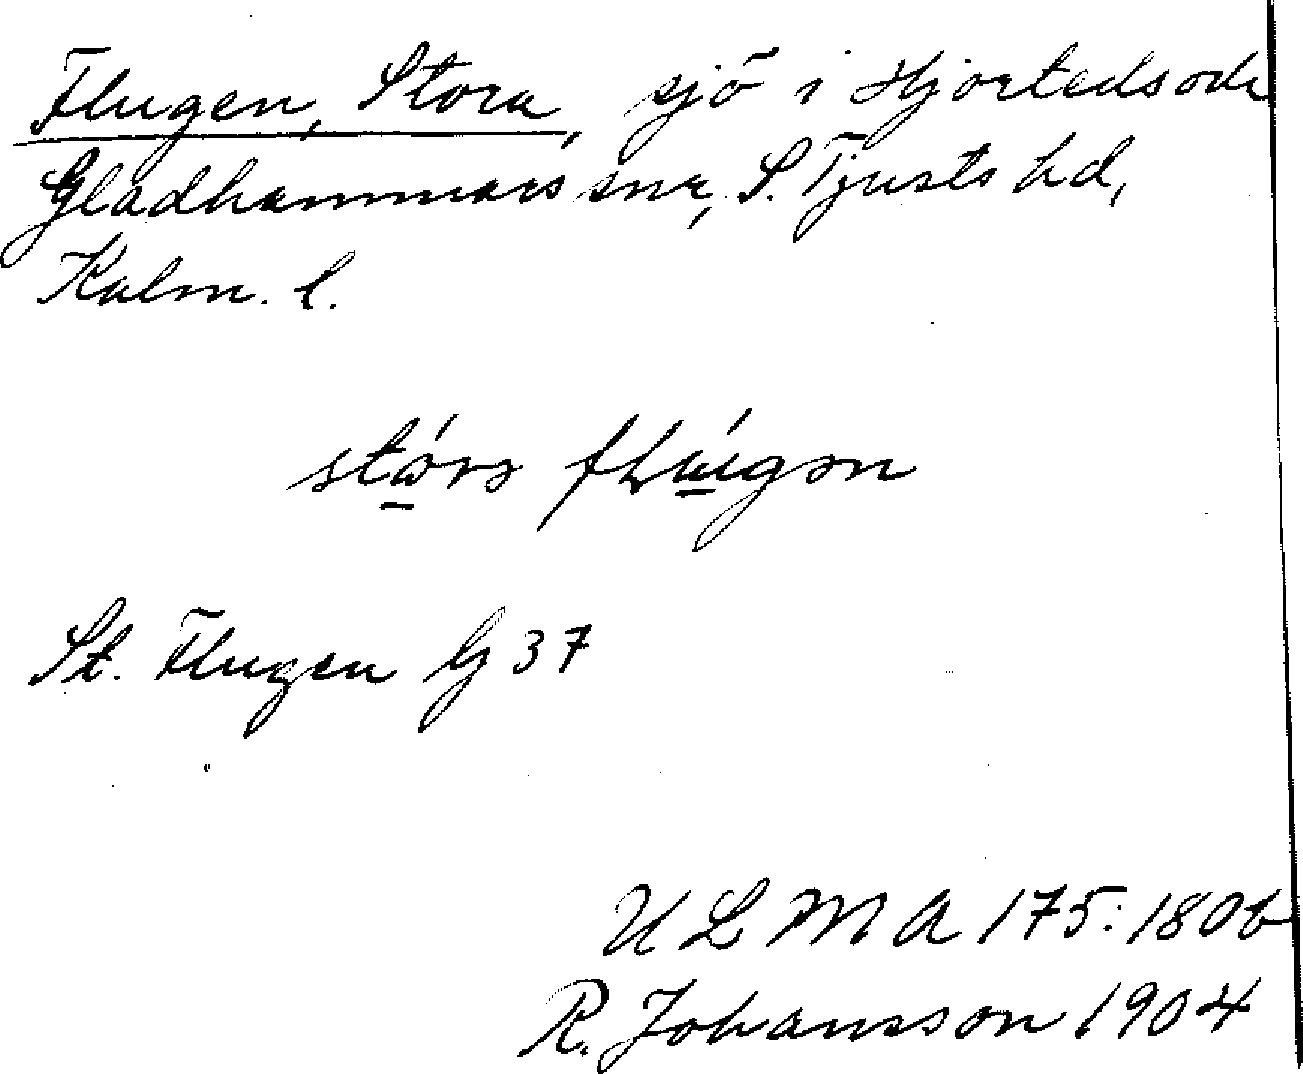 Flugen, Stora, sjö i Hjorteds och
Gladhammars snr, S. Tjusts hd,
Kalm. l.
St. Flugen G 37
ULMA 175:180b
R. Johansson 1904